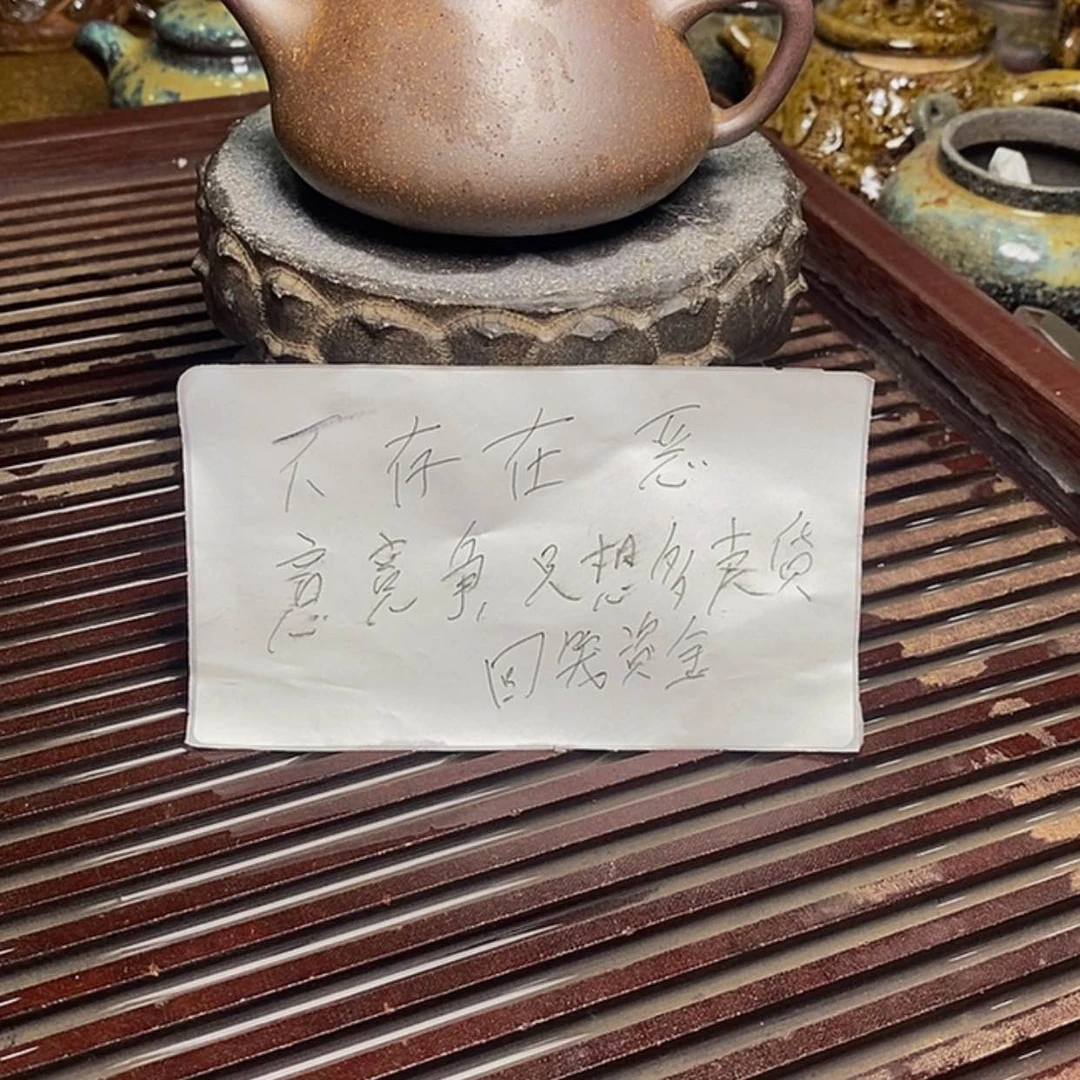 不存在恶
意竞争,只想多卖货
回笼资金